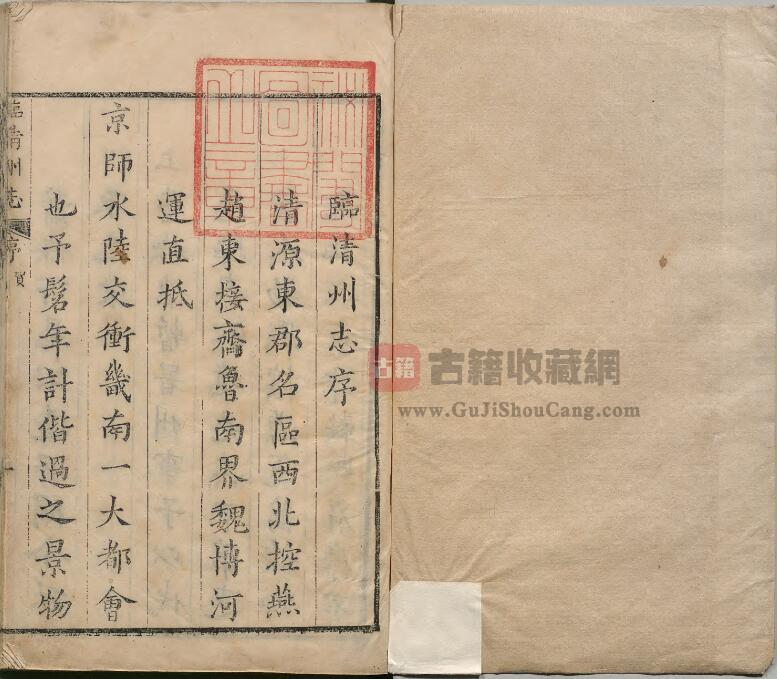 臨清州志序
清源東郡名區西北控燕
趙東接齊魯南界魏博河
運直抵
京師水陸交衝畿南一大都會
也予髫年計偕過之景物
臨清州志
序
賀
一
古籍
古籍收藏網
www.GuJiShouCang.com